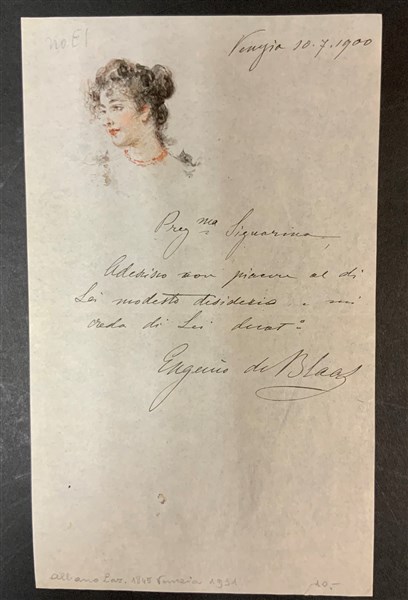 Venezia 10.7.1900
Preg.ma Signorina,
Aderisco con piacere al di
Lei modesto desiderio e mi
creda di Lei devot.o
Eugenio de Blaas
Albano Laz. 1845 Venezia 1931